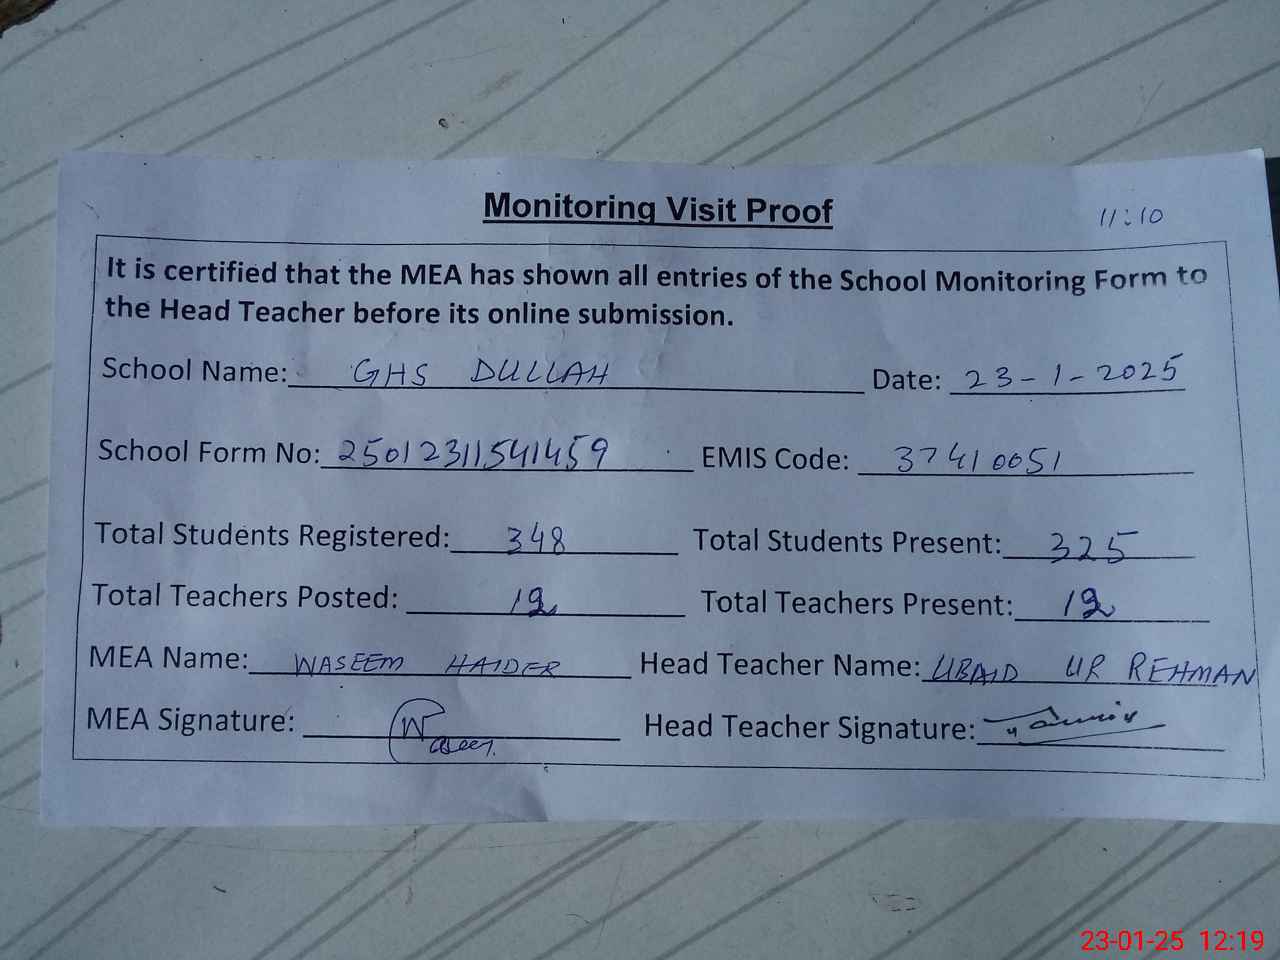 Monitoring Visit Proof
11:10
It is certified that the MEA has shown all entries of the School Monitoring Form to
the Head Teacher before its online submission.
School Name: GHS DULLAH Date: 23-1-2025
School Form No: 25012311541459 EMIS Code: 37410051
Total Students Registered: 348 Total Students Present: 325
Total Teachers Posted: 12 Total Teachers Present: 12
MEA Name: WASEEM HAIDER Head Teacher Name: UBAID UR REHMAN
MEA Signature: Waseem Head Teacher Signature:
23-01-25 12:19